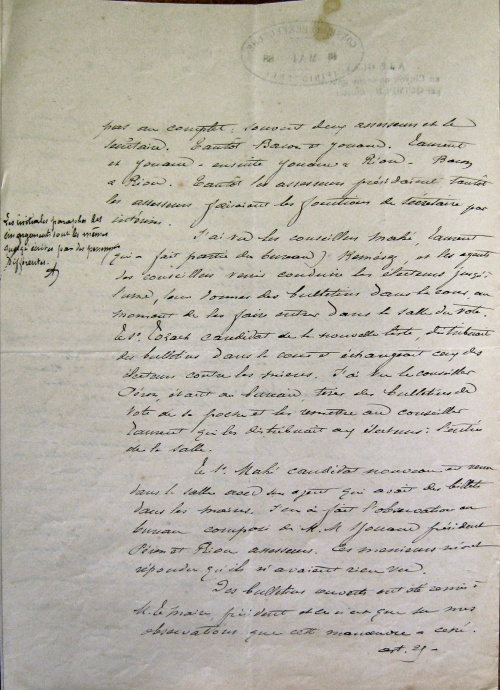 pas au complet; souvent deux assesseurs et le
secrétaire. Tantôt Baron et Jouane. Laurent
et Jouane - ensuite Jouane & Riou - Baron
& Riou. Tantôt les assesseurs présidaient tantôt
les assesseurs faisaient les fonctions de secrétaire par
intérim.
Les initiales paraphes des
émargement sont les mêmes
différentes.
J'ai vu les conseillers Mahé, Laurent
(qui a fait partie du bureau) et les agents
des conseillers venir conduire les électeurs jusqu'à
l'urne, leur donner des bulletins dans la cour au
moment de les faire entrer dans la salle du vote.
Le Sr. candidat de la nouvelle liste, distribuait
des bulletins dans la cour et échangeait ceux des
électeurs contre les siens. J'ai vu le conseiller
étant au bureau, tirer des bulletins de
vote de sa poche et les remettre au conseiller
Laurent qui les distribuait aux électeurs à l'entrée
de la salle.
Le Sr. Mahé candidat nouveau est venu
dans la salle avec un agent qui avait des billets
dans les mains. J'en ai fait l'observation au
bureau composé de M. M. Jouane président
et Riou assesseurs. Ces messieurs m'ont
répondu qu'ils n'avaient rien vu.
Des bulletins ouverts ont été remis à
M. le Maire, président et ce n'est que sur mes
observations que cette manœuvre a cessé.
art. 25 -